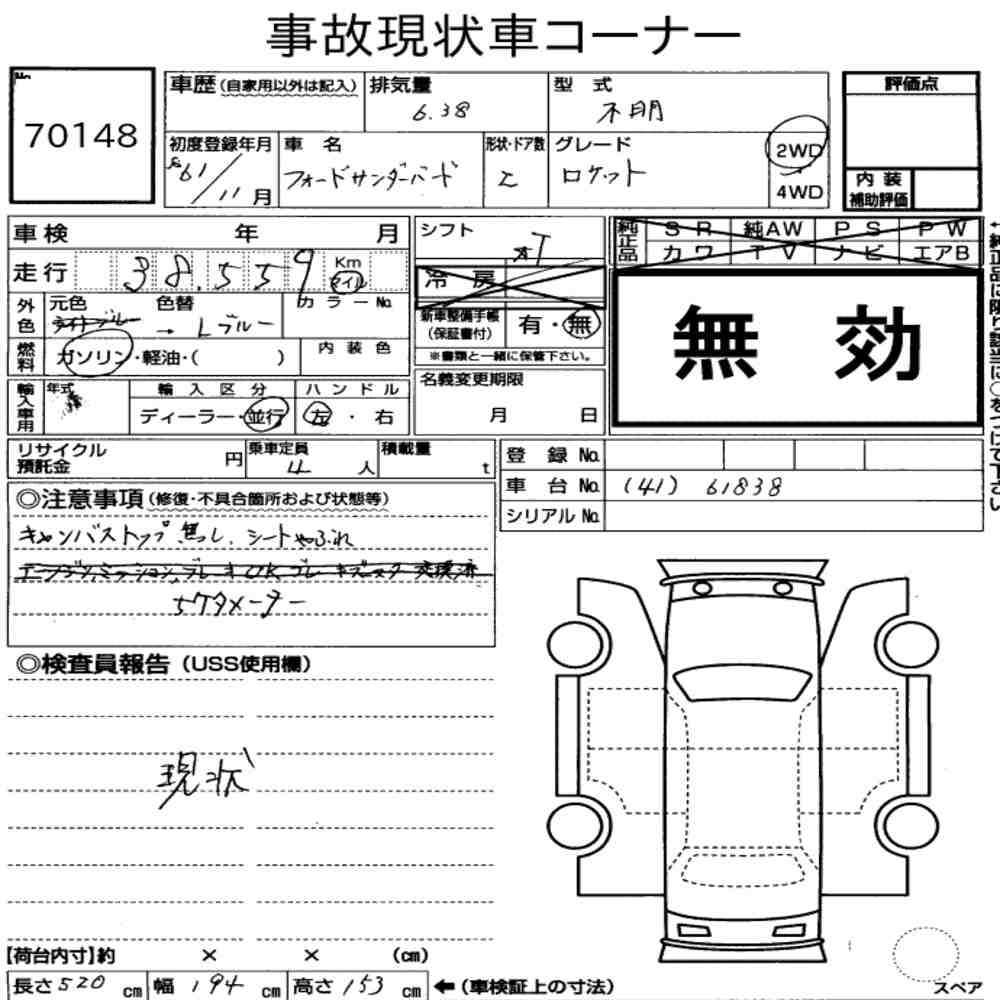 事故現状車コーナー
No.
70148
車歴(自家用以外は記入) 排気量 型式
6.38 不明
初度登録年月 車名 形状・ドア数 グレード
61/11月 フォードサンダーバード 2 ロケット
2WD
4WD
評価点
内装
補助評価
車検 年 月
走行 38,559 Km マイル
外色 元色 色替 カラーNo.
ライトブルー → Lブルー
燃料 ガソリン・軽油・( ) 内装色
輸入車用 年式 輸入区分 ハンドル
ディーラー・並行 左・右
シフト
AT
冷房
新車整備手帳
(保証書付) 有・無
※書類と一緒に保管下さい。
名義変更期限
月 日
純正品 SR 純AW PS PW
カワ TV ナビ エアB
無効
リサイクル
預託金 円 乗車定員 4人 積載量 t
登録No.
車台No. (41) 61838
シリアルNo.
◎注意事項(修復・不具合箇所および状態等)
キャンバストップ無し、シートやぶれ
5ケタメーター
◎検査員報告(USS使用欄)
現状
【荷台内寸】約 × × (cm)
長さ520cm 幅194cm 高さ153cm ←(車検証上の寸法)
スペア